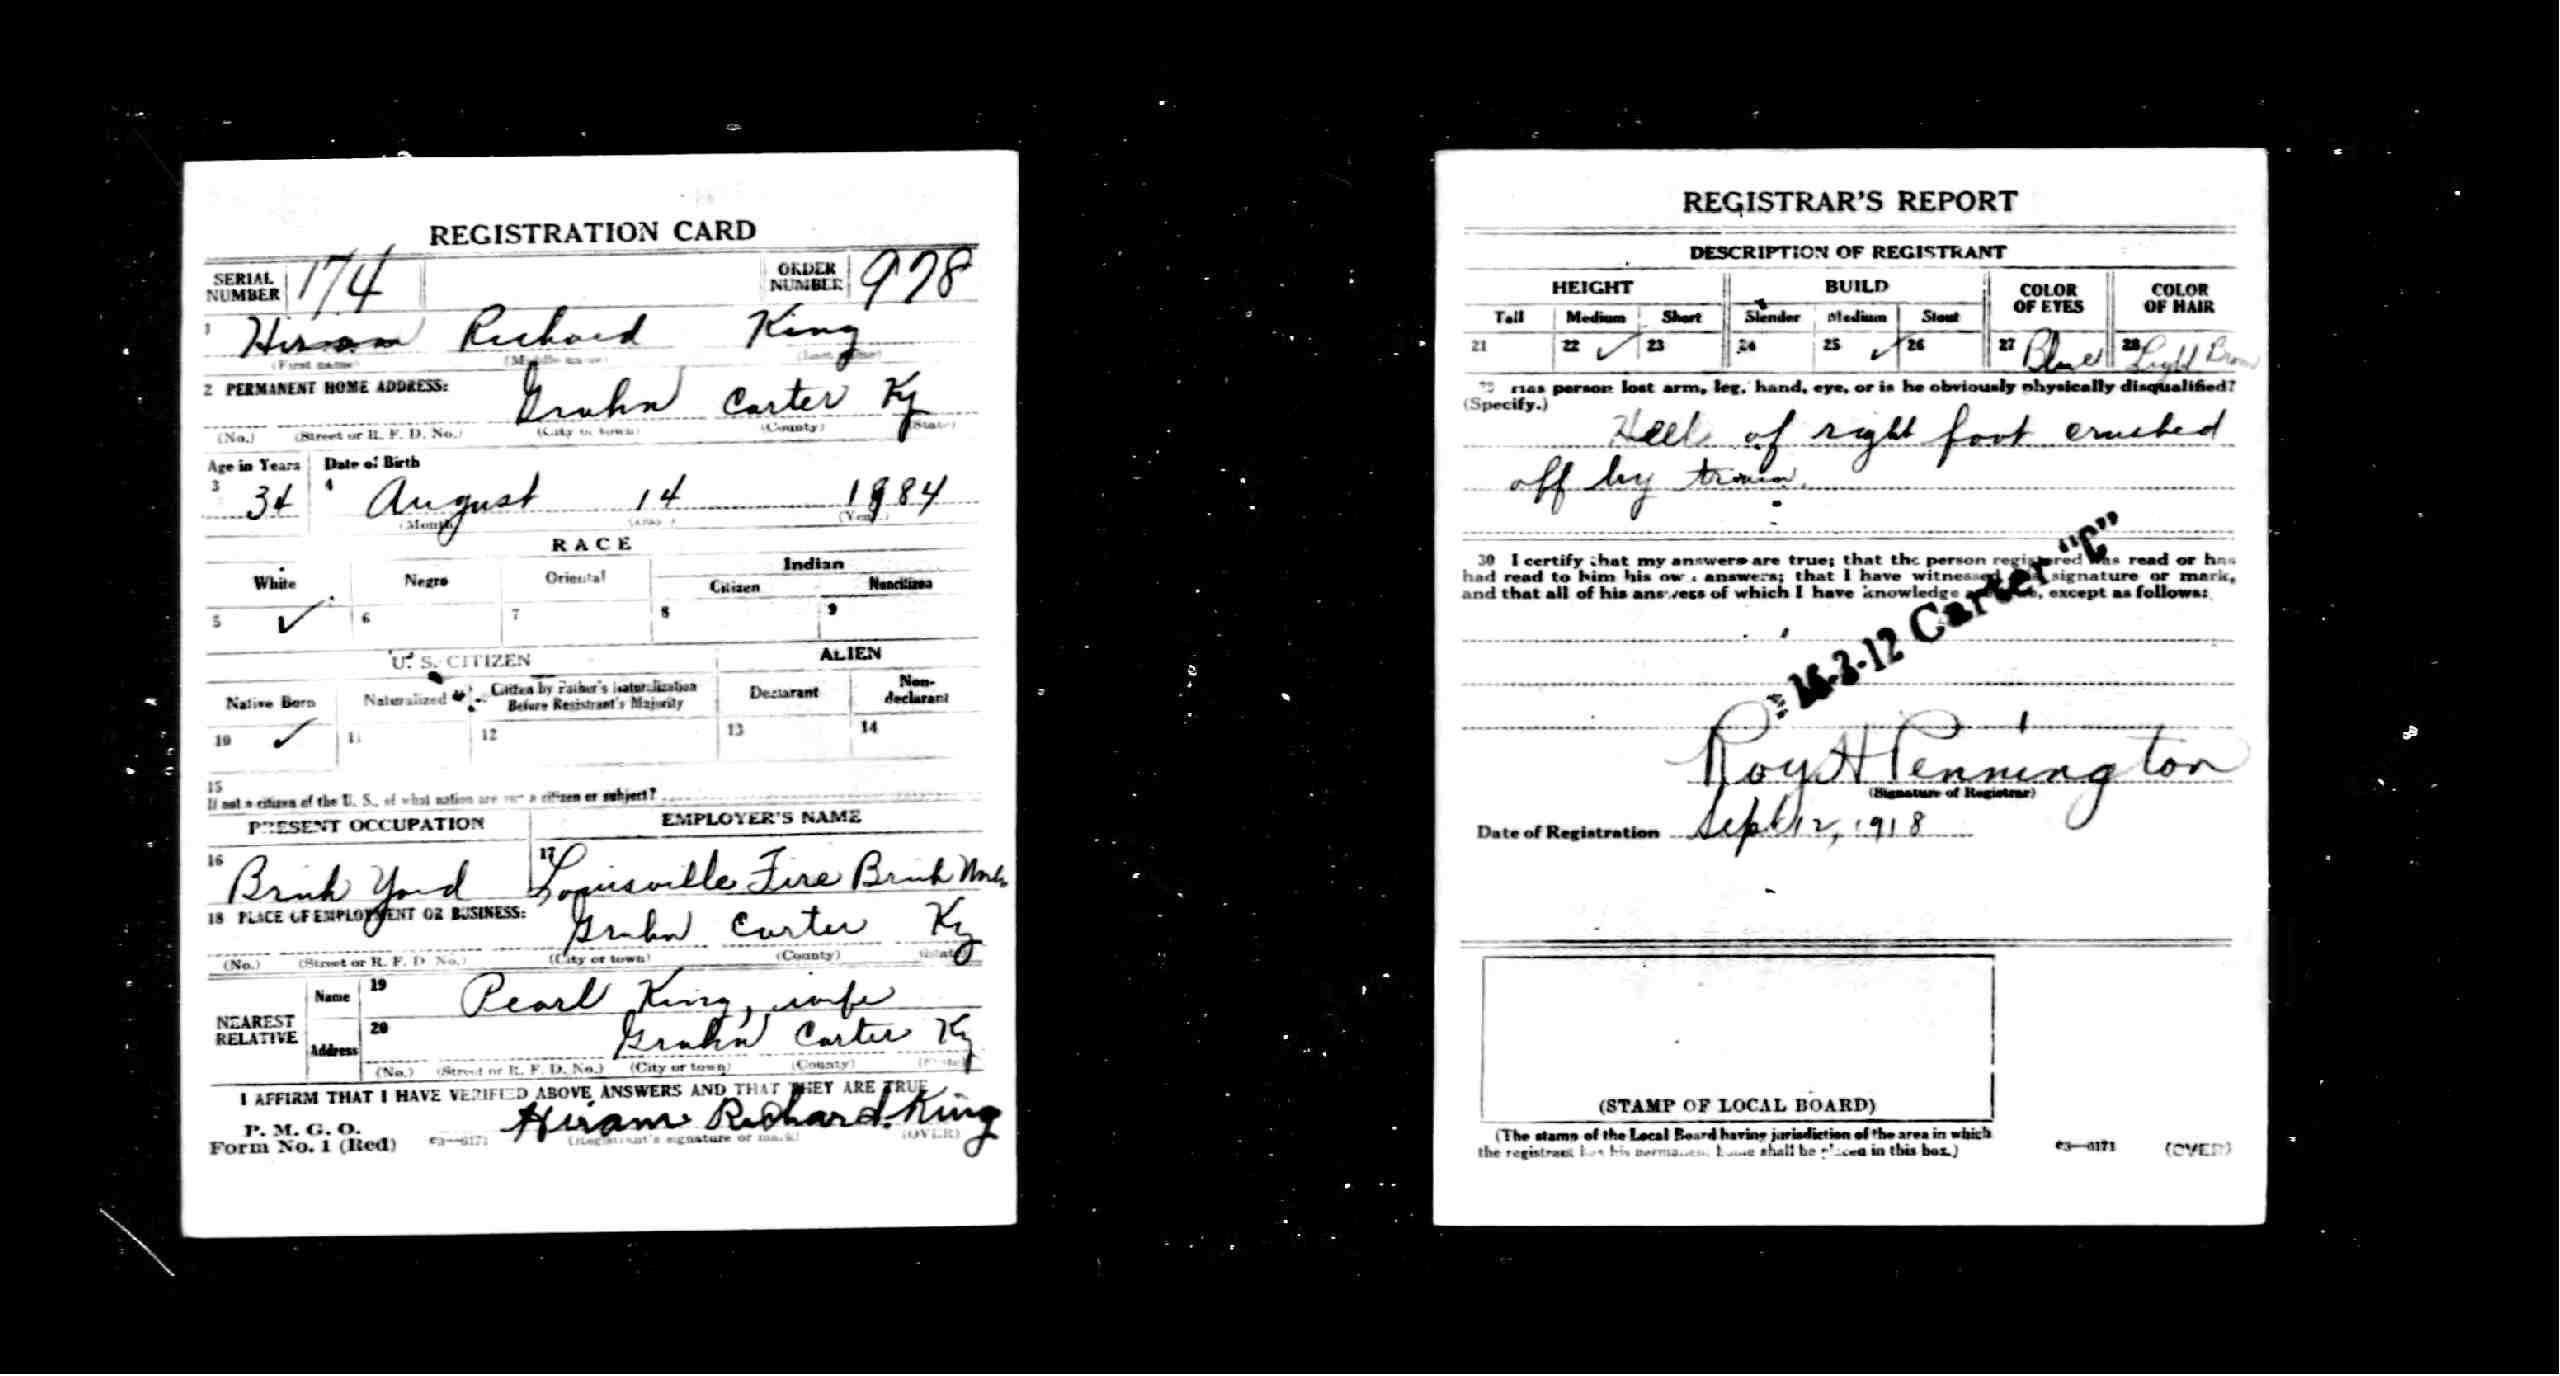 REGISTRATION CARD
SERIAL NUMBER 174 ORDER NUMBER 978
1 Hiram Richard King
(First name) (Middle name) (Last name)
2 PERMANENT HOME ADDRESS: Grahn Carter Ky
(No.) (Street or R. F. D. No.) (City or town) (County) (State)
Age in Years Date of Birth
3 34 4 August 14 1884
(Month) (Day) (Year)
RACE
White Negro Oriental Indian
Citizen Noncitizen
5 ✓ 6 7 8 9
U. S. CITIZEN ALIEN
Native Born Naturalized Citizen by Father's Naturalization Before Registrant's Majority Declarant Non-declarant
10 ✓ 11 12 13 14
15
If not a citizen of the U. S., of what nation are you a citizen or subject?
PRESENT OCCUPATION EMPLOYER'S NAME
16 Brick Yard 17 Louisville Fire Brick Works
18 PLACE OF EMPLOYMENT OR BUSINESS: Grahn Carter Ky
(No.) (Street or R. F. D. No.) (City or town) (County) (State)
NEAREST RELATIVE Name 19 Pearl King, wife
Address 20 Grahn Carter Ky
(No.) (Street or R. F. D. No.) (City or town) (County) (State)
I AFFIRM THAT I HAVE VERIFIED ABOVE ANSWERS AND THAT THEY ARE TRUE
P. M. G. O.
Form No. 1 (Red) 03—6171 Hiram Richard. King
(Registrant's signature or mark) (OVER)
REGISTRAR'S REPORT
DESCRIPTION OF REGISTRANT
HEIGHT BUILD COLOR OF EYES COLOR OF HAIR
Tall Medium Short Slender Medium Stout
21 22 ✓ 23 24 25 ✓ 26 27 Blue 28 Light Brown
29 Has person lost arm, leg, hand, eye, or is he obviously physically disqualified?
(Specify.)
Heel of right foot crushed
off by train.
30 I certify that my answers are true; that the person registered has read or has
had read to him his own answers; that I have witnessed his signature or mark,
and that all of his answers of which I have knowledge are true, except as follows:
16-2-12 Carter "C"
Roy H Pennington
(Signature of Registrar)
Date of Registration Sept 12, 1918
(STAMP OF LOCAL BOARD)
(The stamp of the Local Board having jurisdiction of the area in which
the registrant has his permanent home shall be placed in this box.)
03—6171 (OVER)